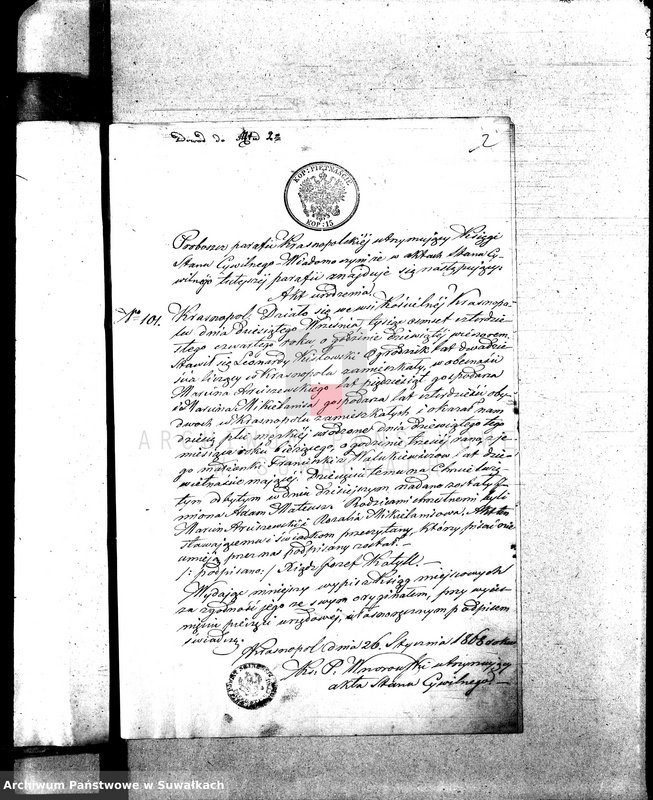 Dowód do Aktu 2go
2
KOP: PIĘTNAŚCIE
KOP: 15
Proboszcz parafii Krasnopolskiéj utrzymujący Księgi
Stanu Cywilnego Wiadomo czyni że w aktach Stanu Cy-
wilnego tutejszej parafii znajduje się następujący:
Akt urodzenia
No 101. Krasnopol. Działo się we wsi Kościelnéj Krasnopo-
lu dnia dziesiątego Września tysiąc osmset czterdzie-
stego czwartego roku, o godzinie dziewiątéj wieczorem.
Stawił się Leonardy Kisłowski Ogrodnik lat dwadzie-
ścia liczący w Krasnopolu zamieszkały, w obecności
Marcina Aruszewskiego lat pięćdziesiąt gospodarza
i Marcina Mikielania gospodarza lat czterdzieści oby-
dwóch w Krasnopolu zamieszkałych i okazał nam
dziecię płci męzkiéj urodzone dnia dziewiątego tego
miesiąca roku bieżącego, o godzinie trzeciéj rano z je-
go małżonki Franciszki z Walukiewiczów lat dzie-
więtnaście mającéj. Dziecięciu temu na Chrzcie świę-
tym odbytym w dniu dzisiejszym nadane zostały I-
miona Adam Mateusz. Rodzicami chrzestnemi byli
Marcin Aruszewski i Rozalia Mikielaniowa. Akt ten
stawającemu i świadkom przeczytany, który pisać nie
umieją przez nas podpisany został. —
/: podpisano:/ Xiądz Józef Katyll. —
Wydając niniejszy wypis z Ksiąg miejscowych
za zgodność jego ze swym oryginałem, przy wyciś-
nięciu pieczęci urzędowéj, własnoręcznym podpisem
świadczę.
Krasnopol dnia 26. Stycznia 1868 roku
Ks. P. Wnorowski utrzymujący
akta Stanu Cywilnego —
Archiwum Państwowe w Suwałkach